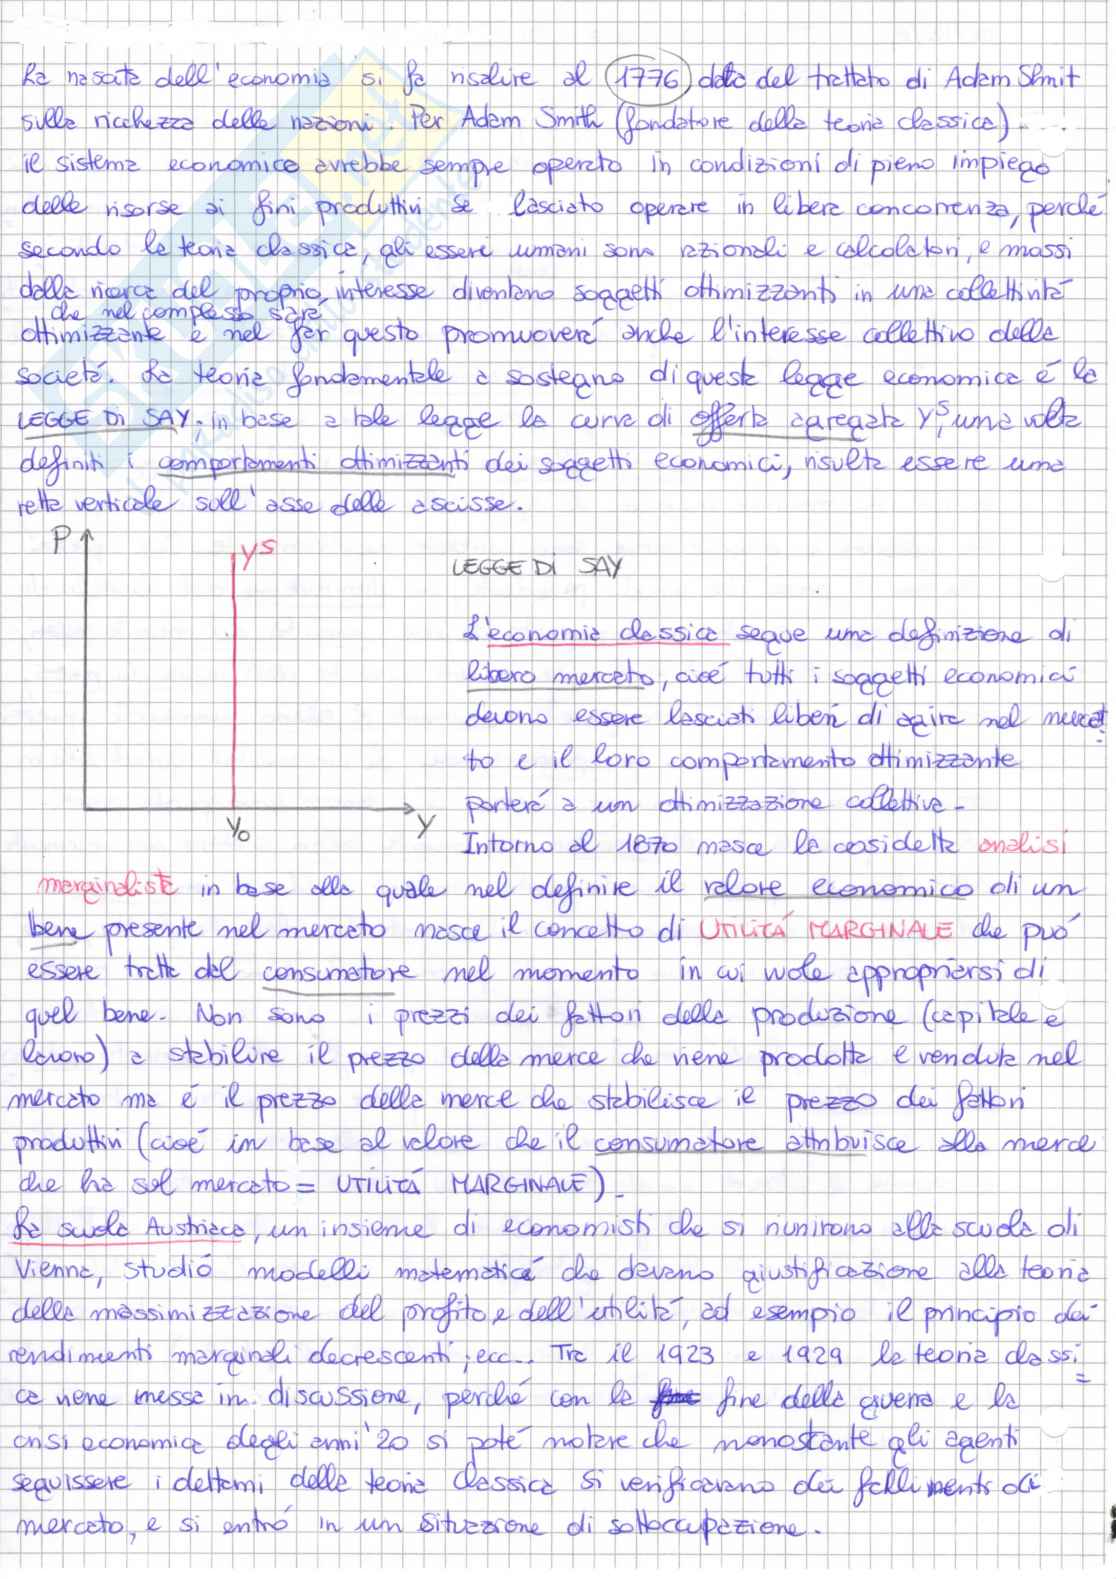 La nascita dell'economia si fa risalire al 1776 data del trattato di Adam Shmit
sulla ricchezza delle nazioni. Per Adam Smith (fondatore della teoria classica)
il sistema economico avrebbe sempre operato in condizioni di pieno impiego
delle risorse ai fini produttivi se lasciato operare in libera concorrenza, perché
secondo la teoria classica, gli esseri umani sono razionali e calcolatori, e mossi
dalla ricerca del proprio interesse diventano soggetti ottimizzanti in una collettività
che nel complesso sarà
ottimizzante e nel far questo promuoverá anche l'interesse collettivo della
società. La teoria fondamentale a sostegno di questa legge economica é la
LEGGE DI SAY; in base a tale legge la curva di offerta agregata Yˢ, una volta
definiti i comportamenti ottimizzanti dei soggetti economici, risulta essere una
retta verticale sull'asse delle ascisse.
P
Yˢ
LEGGE DI SAY
L'economia classica segue una definizione di
libero mercato, cioé tutti i soggetti economici
devono essere lasciati liberi di agire nel merca
to e il loro comportamento ottimizzante
porterá a un ottimizzazione collettiva -
Y₀
Y
Intorno al 1870 nasce la cosidetta analisi
marginalista in base alla quale nel definire il valore economico di un
bene presente nel mercato nasce il concetto di UTILITÁ MARGINALE che puó
essere tratta dal consumatore nel momento in cui vuole appropriarsi di
quel bene. Non sono i prezzi dei fattori della produzione (capitale e
lavoro) a stabilire il prezzo della merce che viene prodotta e venduta nel
mercato ma é il prezzo della merce che stabilisce il prezzo dei fattori
produttivi (cioé in base al valore che il consumatore attribuisce alla merce
che ha sul mercato = UTILITÁ MARGINALE)-
La scuola Austriaca, un insieme di economisti che si riunirono alla scuola di
Vienna, studió modelli matematici che davano giustificazione alla teoria
della massimizzazione del profitto e dell'utilitá, ad esempio il principio dei
rendimenti marginali decrescenti, ecc... Tra il 1923 e 1929 la teoria classi=
ca viene messa in discussione, perché con la fine della guerra e la
crisi economica degli anni '20 si poté notare che nonostante gli agenti
seguissere i dettami della teoria classica si verificavano dei fallimenti di
mercato, e si entró in un situazione di sottoccupazione.